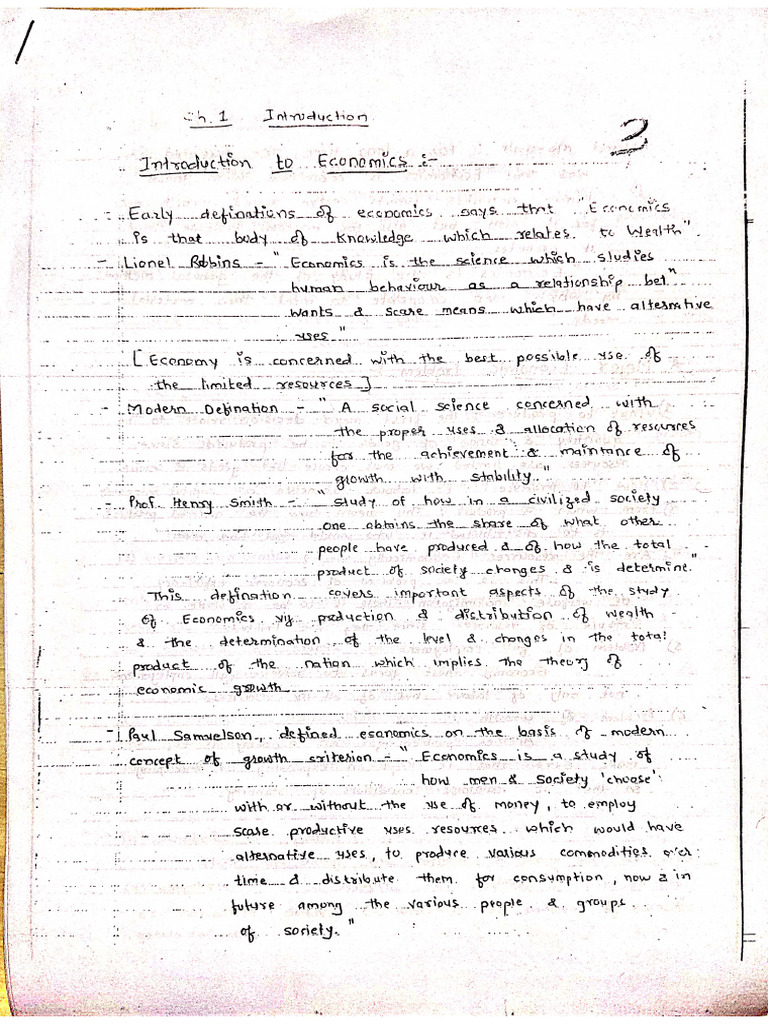 Ch. 1 Introduction
3
Introduction to Economics :-
- Early definations of economics says that "Economics
is that body of knowledge which relates to Wealth".
- Lionel Robins - "Economics is the science which studies
human behaviour as a relationship bet"
wants & scare means which have alternative
uses"
[Economy is concerned with the best possible use of
the limited resources]
- Modern Defination - "A social science concerned with
the proper uses & allocation of resources
for the achievement & maintance of
growth with stability."
- Prof. Henry Smith - "Study of how in a civilized society
one obtains the share of what other
people have produced & of how the total
product of society changes & is determine."
This defination covers important aspects of the study
of Economics viz production & distribution of wealth
& the determination of the level & changes in the total
product of the nation which implies the theory of
economic growth
- Paul Samuelson, defined esanomics on the basis of modern
concept of growth criterion - "Economics is a study of
how men & society 'choose'
with or without the use of money, to employ
scase productive uses resources which would have
alternative uses, to produce various commodities over
time & distribute them for consumption, now & in
future among the various people & groups
of society."